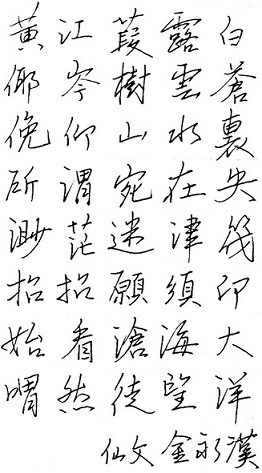 黃江葭露白
倻岑樹雲蒼
俛仰山水裏
所謂宛在央
渺茫迷津筏
招招願須卬
始看滄海大
喟然徒望洋
仙文 金永漢